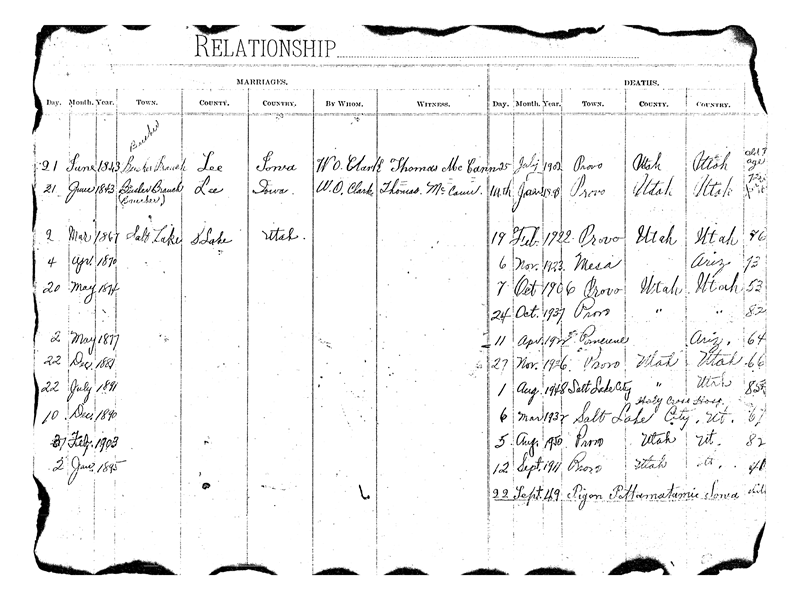 RELATIONSHIP
MARRIAGES. DEATHS.
Day. Month. Year. TOWN. COUNTY. COUNTRY. BY WHOM. WITNESS. Day. Month. Year. TOWN. COUNTY. COUNTRY.
21 June 1843 Branch Lee Iowa W. O. Clark Thomas McCann 25 July Provo Utah Utah
age
21 June 1843 Branch Lee Iowa. W. O. Clark Thomas McCann. 14th Jan Provo Utah Utah
2 Mar 1867 Salt Lake S Lake Utah. 19 Feb. 1922 Provo Utah Utah 96
4 Apr 1870 6 Nov. 1923. Mesa Ariz 73
20 May 1874 7 Oct 1906 Provo Utah Utah 53
24 Oct. 1937 Provo " " 82
2 May 1877 11 Apr. Ariz. 64
22 Dec. 1881 27 Nov. 1926. Provo Utah Utah 66
22 July 1891 1 Aug 1948 Salt Lake City " Utah
Holy Cross Hosp.
10 Dec. 1890 6 Mar 1937 Salt Lake City. Ut. 67
Feb. 1903 5 Aug. 1950 Provo Utah Ut. 82
2 June 1895 12 Sept. 1911 Provo Utah Ut.
22 Sept. 49 Pigon Pottamatamie Iowa